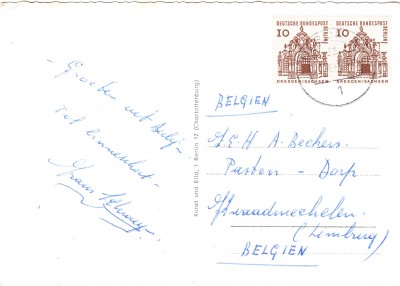 - Groeten uit Berlijn -
Tot binnenkort -
Kunst und Bild, 1 Berlin 12 (Charlottenburg)
DEUTSCHE BUNDESPOST
BERLIN
10
DRESDEN/SACHSEN
DEUTSCHE BUNDESPOST
BERLIN
10
DRESDEN/SACHSEN
1
BELGIEN
Z.E.H A. Beckers.
Pastoor - Dorp
(Limburg)
BELGIEN